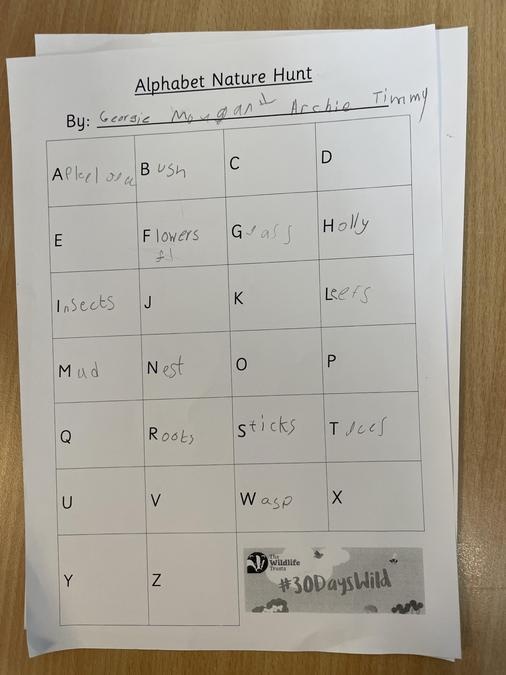 Alphabet Nature Hunt
By: Georgie Archie Timmy
A
Bush
C
D
E
Flowers
fl
Grass
Holly
Insects
J
K
Leefs
Mud
Nest
O
P
Q
Roots
Sticks
Trees
U
V
Wasp
X
Y
Z
The
Wildlife
Trusts
#30DaysWild